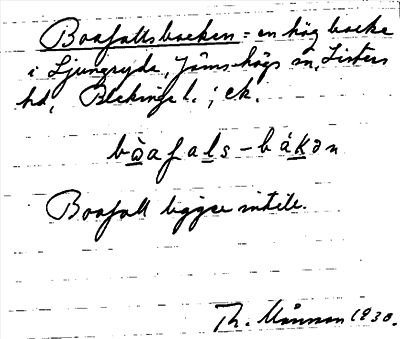 Boafallsbacken = en hög backe
i Ljungryda, Jäms hög s sn, Listers
hd, Blekinge l. ; ek.
bòafals-bákən
Boafall ligger intill.
Th. Månsson 1930.